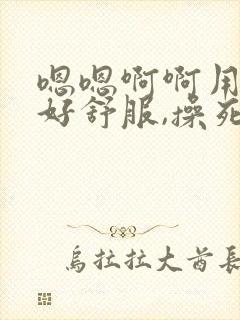 嗯嗯啊啊用
好舒服,操死
乌拉拉大酋长